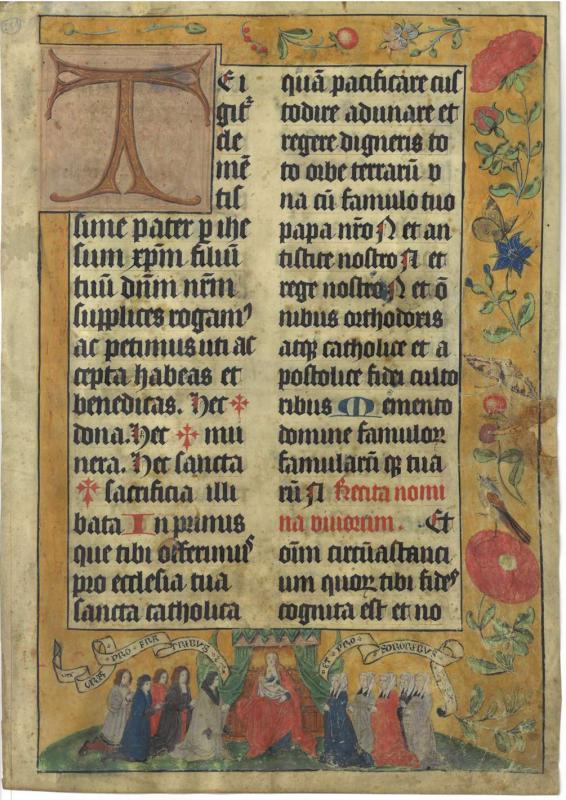 TE i
git᷑
cle
mē
tis
sime pater p ihe
sum xpm̄ filiū
tuū dn̄m nr̄m
supplices rogamꝰ
ac petimus uti ac
cepta habeas et
benedicas. Hec ✠
dona. Hec ✠ mu
nera. Hec sancta
✠ sacrificia illi
bata In primus
que tibi offerimus
pro ecclesia tua
sancta catholica
quā pacificare cus
todire adunare et
regere digneris to
to orbe terrarū v
na cū famulo tuo
papa nr̄o N et an
tistite nostro N et
rege nostro N et ō
nibus orthodoxis
atqꝫ catholice et a
postolice fidei culto
ribus Memento
domine famuloꝝ
famularū qꝫ tua
rū N Recita nomi
na vivorum. Et
oīm circūastanci
um quoꝝ tibi fides
cognita est et no
PRO FRA TRIBVS
ET PRO SORORIBVS